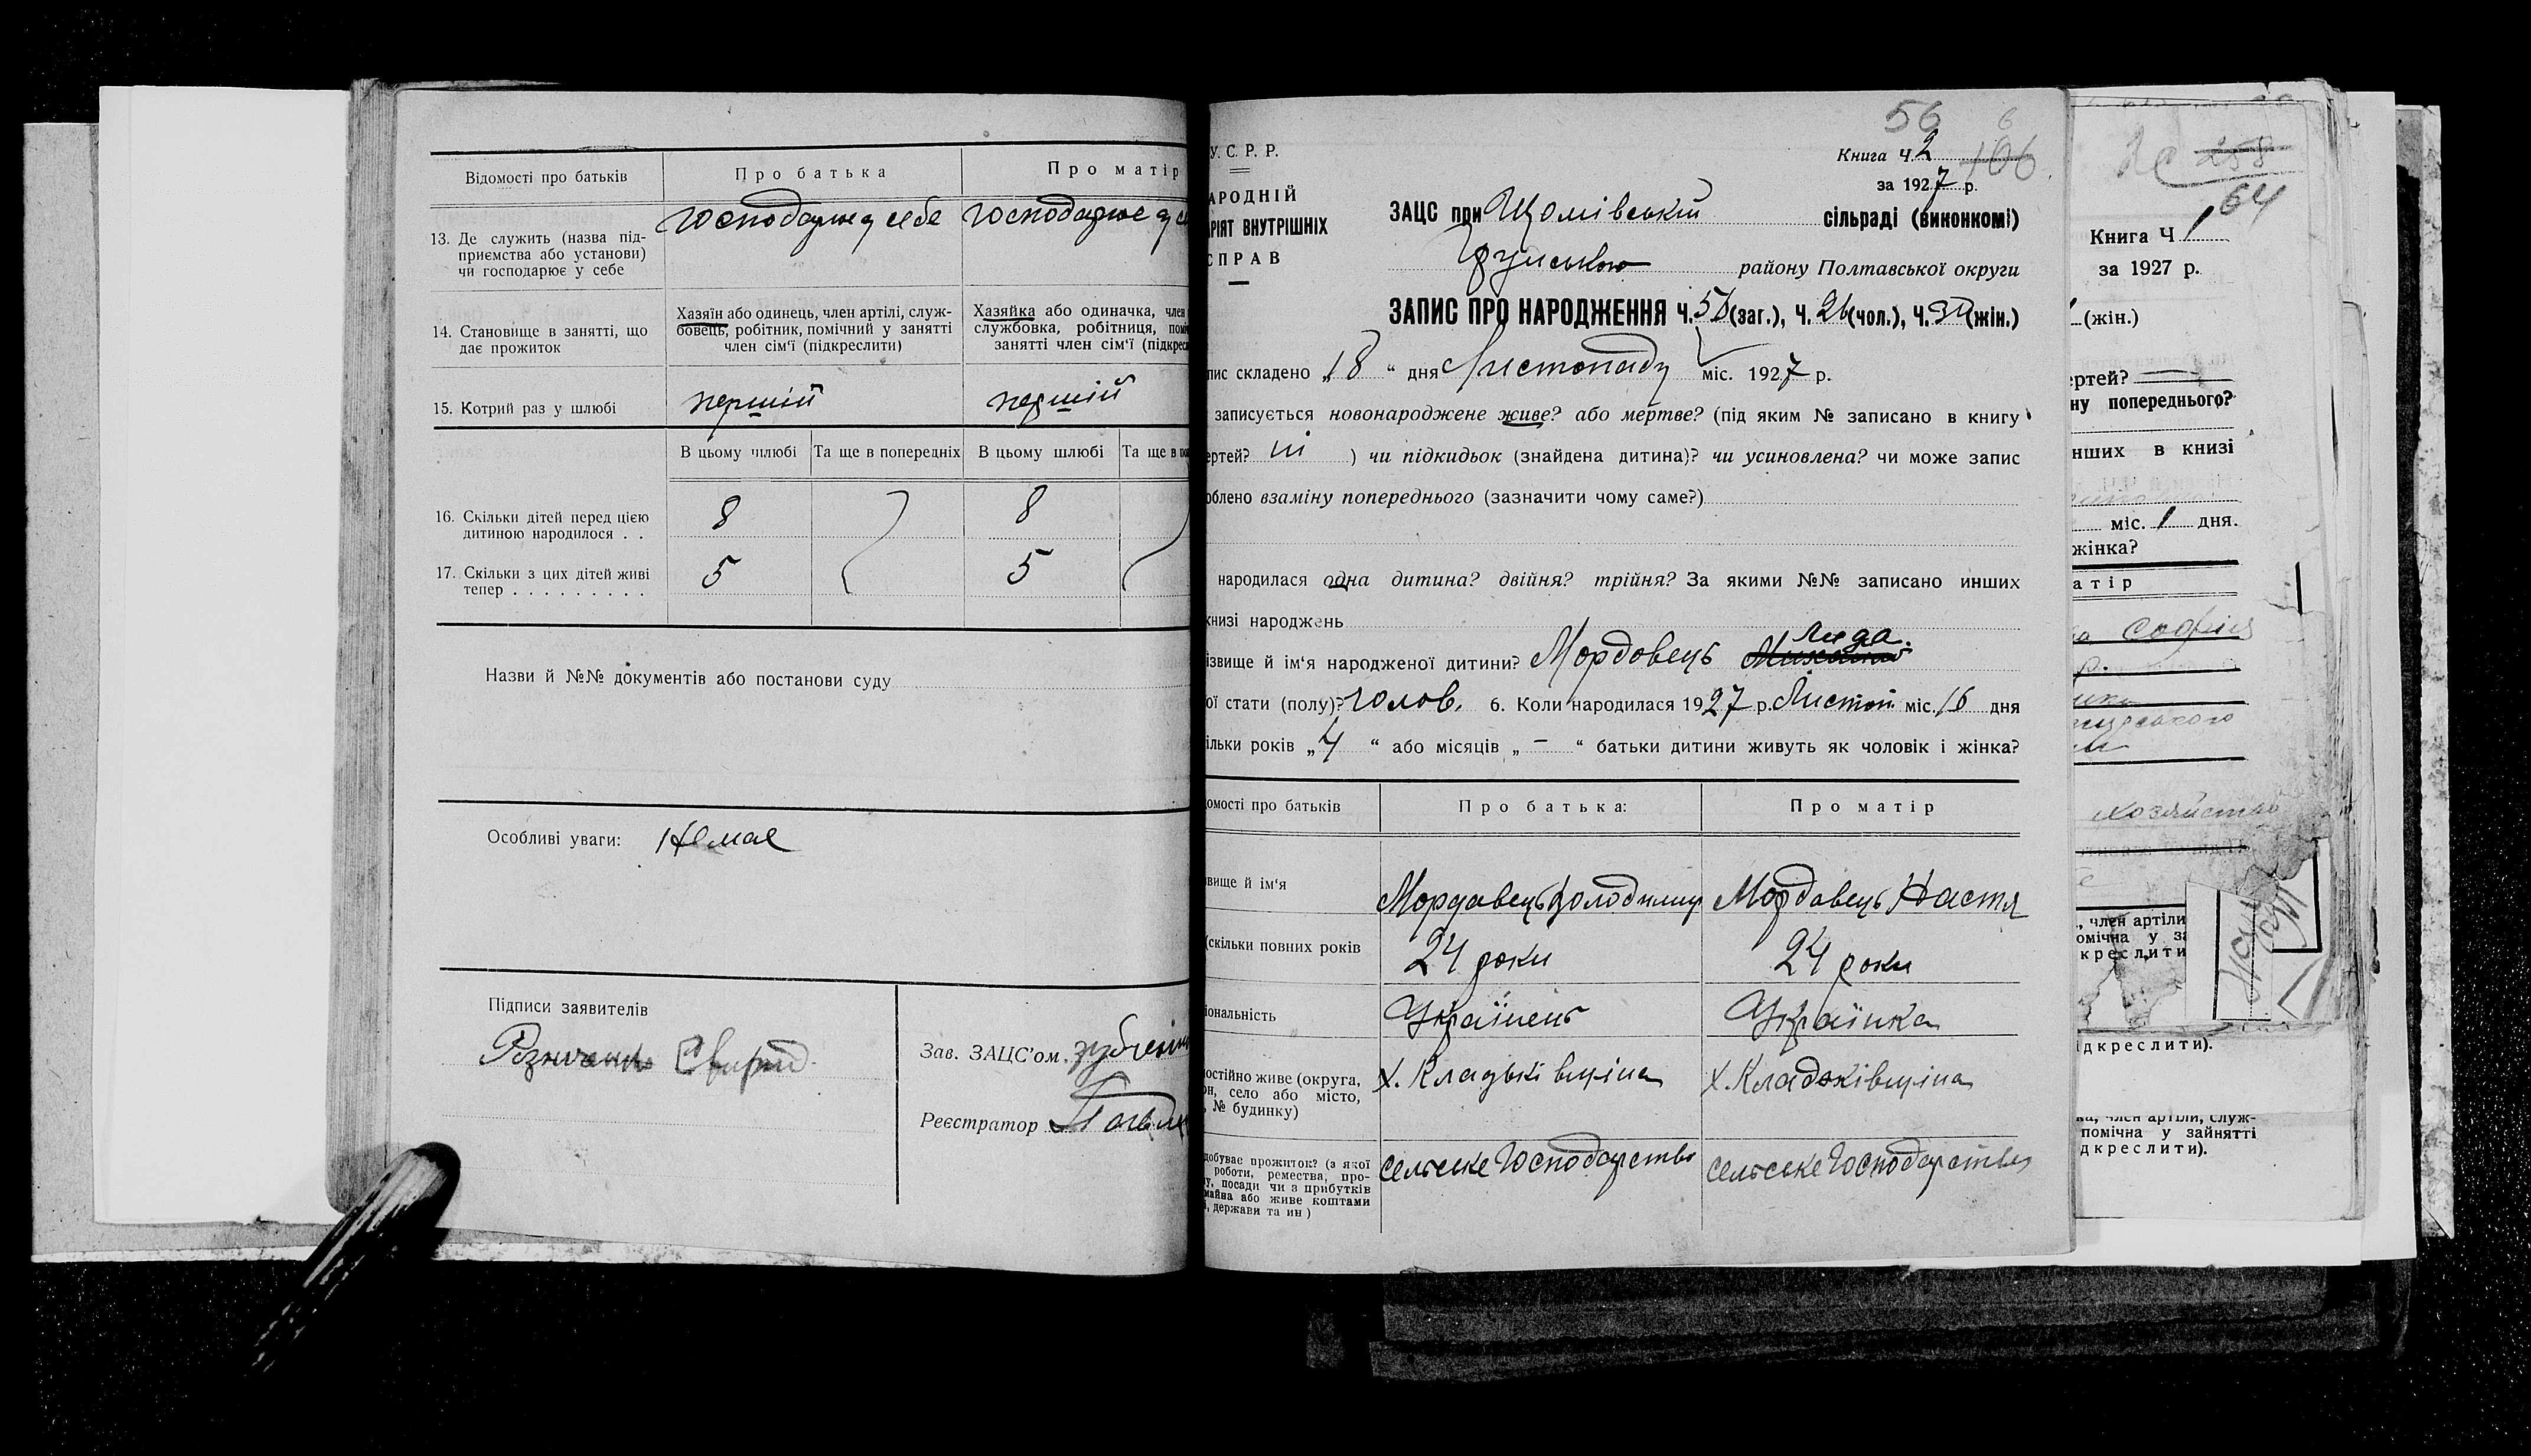 Відомості про батьків
Про батька
Про матір
13. Де служить (назва під-
приємства або установи)
чи господарює у себе
Господарює у себе
Господарює у се
14. Становище в занятті, що
дає прожиток
Хазяїн або одинець, член артілі, служ-
бовець, робітник, помічний у занятті
член сім'ї (підкреслити)
Хазяйка або одиначка, член
службовка, робітниця, поміч
занятті член сім'ї (підкресл
15. Котрий раз у шлюбі
перший
перший
В цьому шлюбі
Та ще в попередніх
В цьому шлюбі
Та ще в по
16. Скільки дітей перед цією
дитиною народилося . .
8
8
17. Скільки з цих дітей живі
тепер . . . . . . . . .
5
5
Назви й №№ документів або постанови суду
Особливі уваги: Немає
Підписи заявителів
Зав. ЗАЦС'ом
Реєстратор
56
6
106
У. С. Р. Р.
Книга Ч. 2
за 1927 р.
АРОДНІЙ
АРІЯТ ВНУТРІШНІХ
СПРАВ
ЗАЦС при сільраді (виконкомі)
району Полтавської округи
ЗАПИС ПРО НАРОДЖЕННЯ Ч. 56 (заг.), Ч. 26 (чол.), Ч. 30 (жін.)
пис складено „18“ дня Листопаду міс. 1927 р.
записується новонароджене живе? або мертве? (під яким № записано в книгу
ертей? ні ) чи підкидьок (знайдена дитина)? чи усиновлена? чи може запис
облено взаміну попереднього (зазначити чому саме?)
народилася одна дитина? двійня? трійня? За якими №№ записано инших
книзі народжень
Лида.
ізвище й ім'я народженої дитини? Мордовець
ої стати (полу)? чолов. 6. Коли народилася 1927 р. Листоп. міс. 16 дня
ільки років „4“ або місяців „-“ батьки дитини живуть як чоловік і жінка?
омості про батьків
Про батька:
Про матір
звище й ім'я
Мордавець Володимир
Мордавець Настя
(скільки повних років
24 роки
24 роки
іональність
Українець
Українка
остійно живе (округа,
он, село або місто,
, № будинку)
х. Кладьківщина
х. Кладьківщина
добуває прожиток? (з якої
роботи, ремества, про-
у, посади чи з прибутків
майна або живе коштами
і, держави та ин)
Сельське Господарство
Сельське Господарство
258
64
Книга Ч 1
за 1927 р.
(жін.)
ертей?
ну попереднього?
нших в книзі
міс. 1 дня.
жінка?
атір
Софія
хозяйство
, член артіли
омічна у за
кресліти
ідкреслити).
ка, член артіли, служ-
помічна у зайнятті
дкреслити).